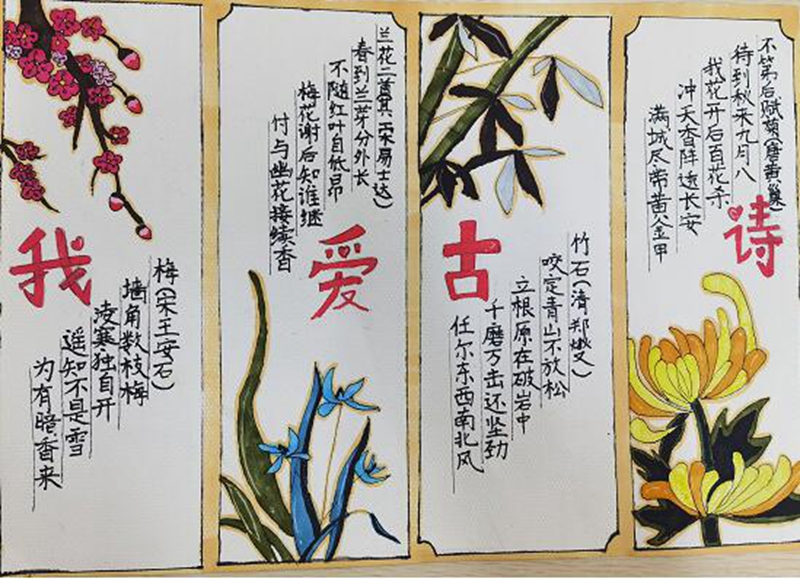 我
梅(宋王安石)
墙角数枝梅
凌寒独自开
遥知不是雪
为有暗香来
爱
兰花二首其(宋易士达)
春到兰芽分外长
不随红叶自低昂
梅花谢后知谁继
付与幽花接续香
古
竹石(清郑燮)
咬定青山不放松
立根原在破岩中
千磨万击还坚劲
任尔东西南北风
诗
不第后赋菊(唐黄巢)
待到秋来九月八
我花开后百花杀
冲天香阵透长安
满城尽带黄金甲